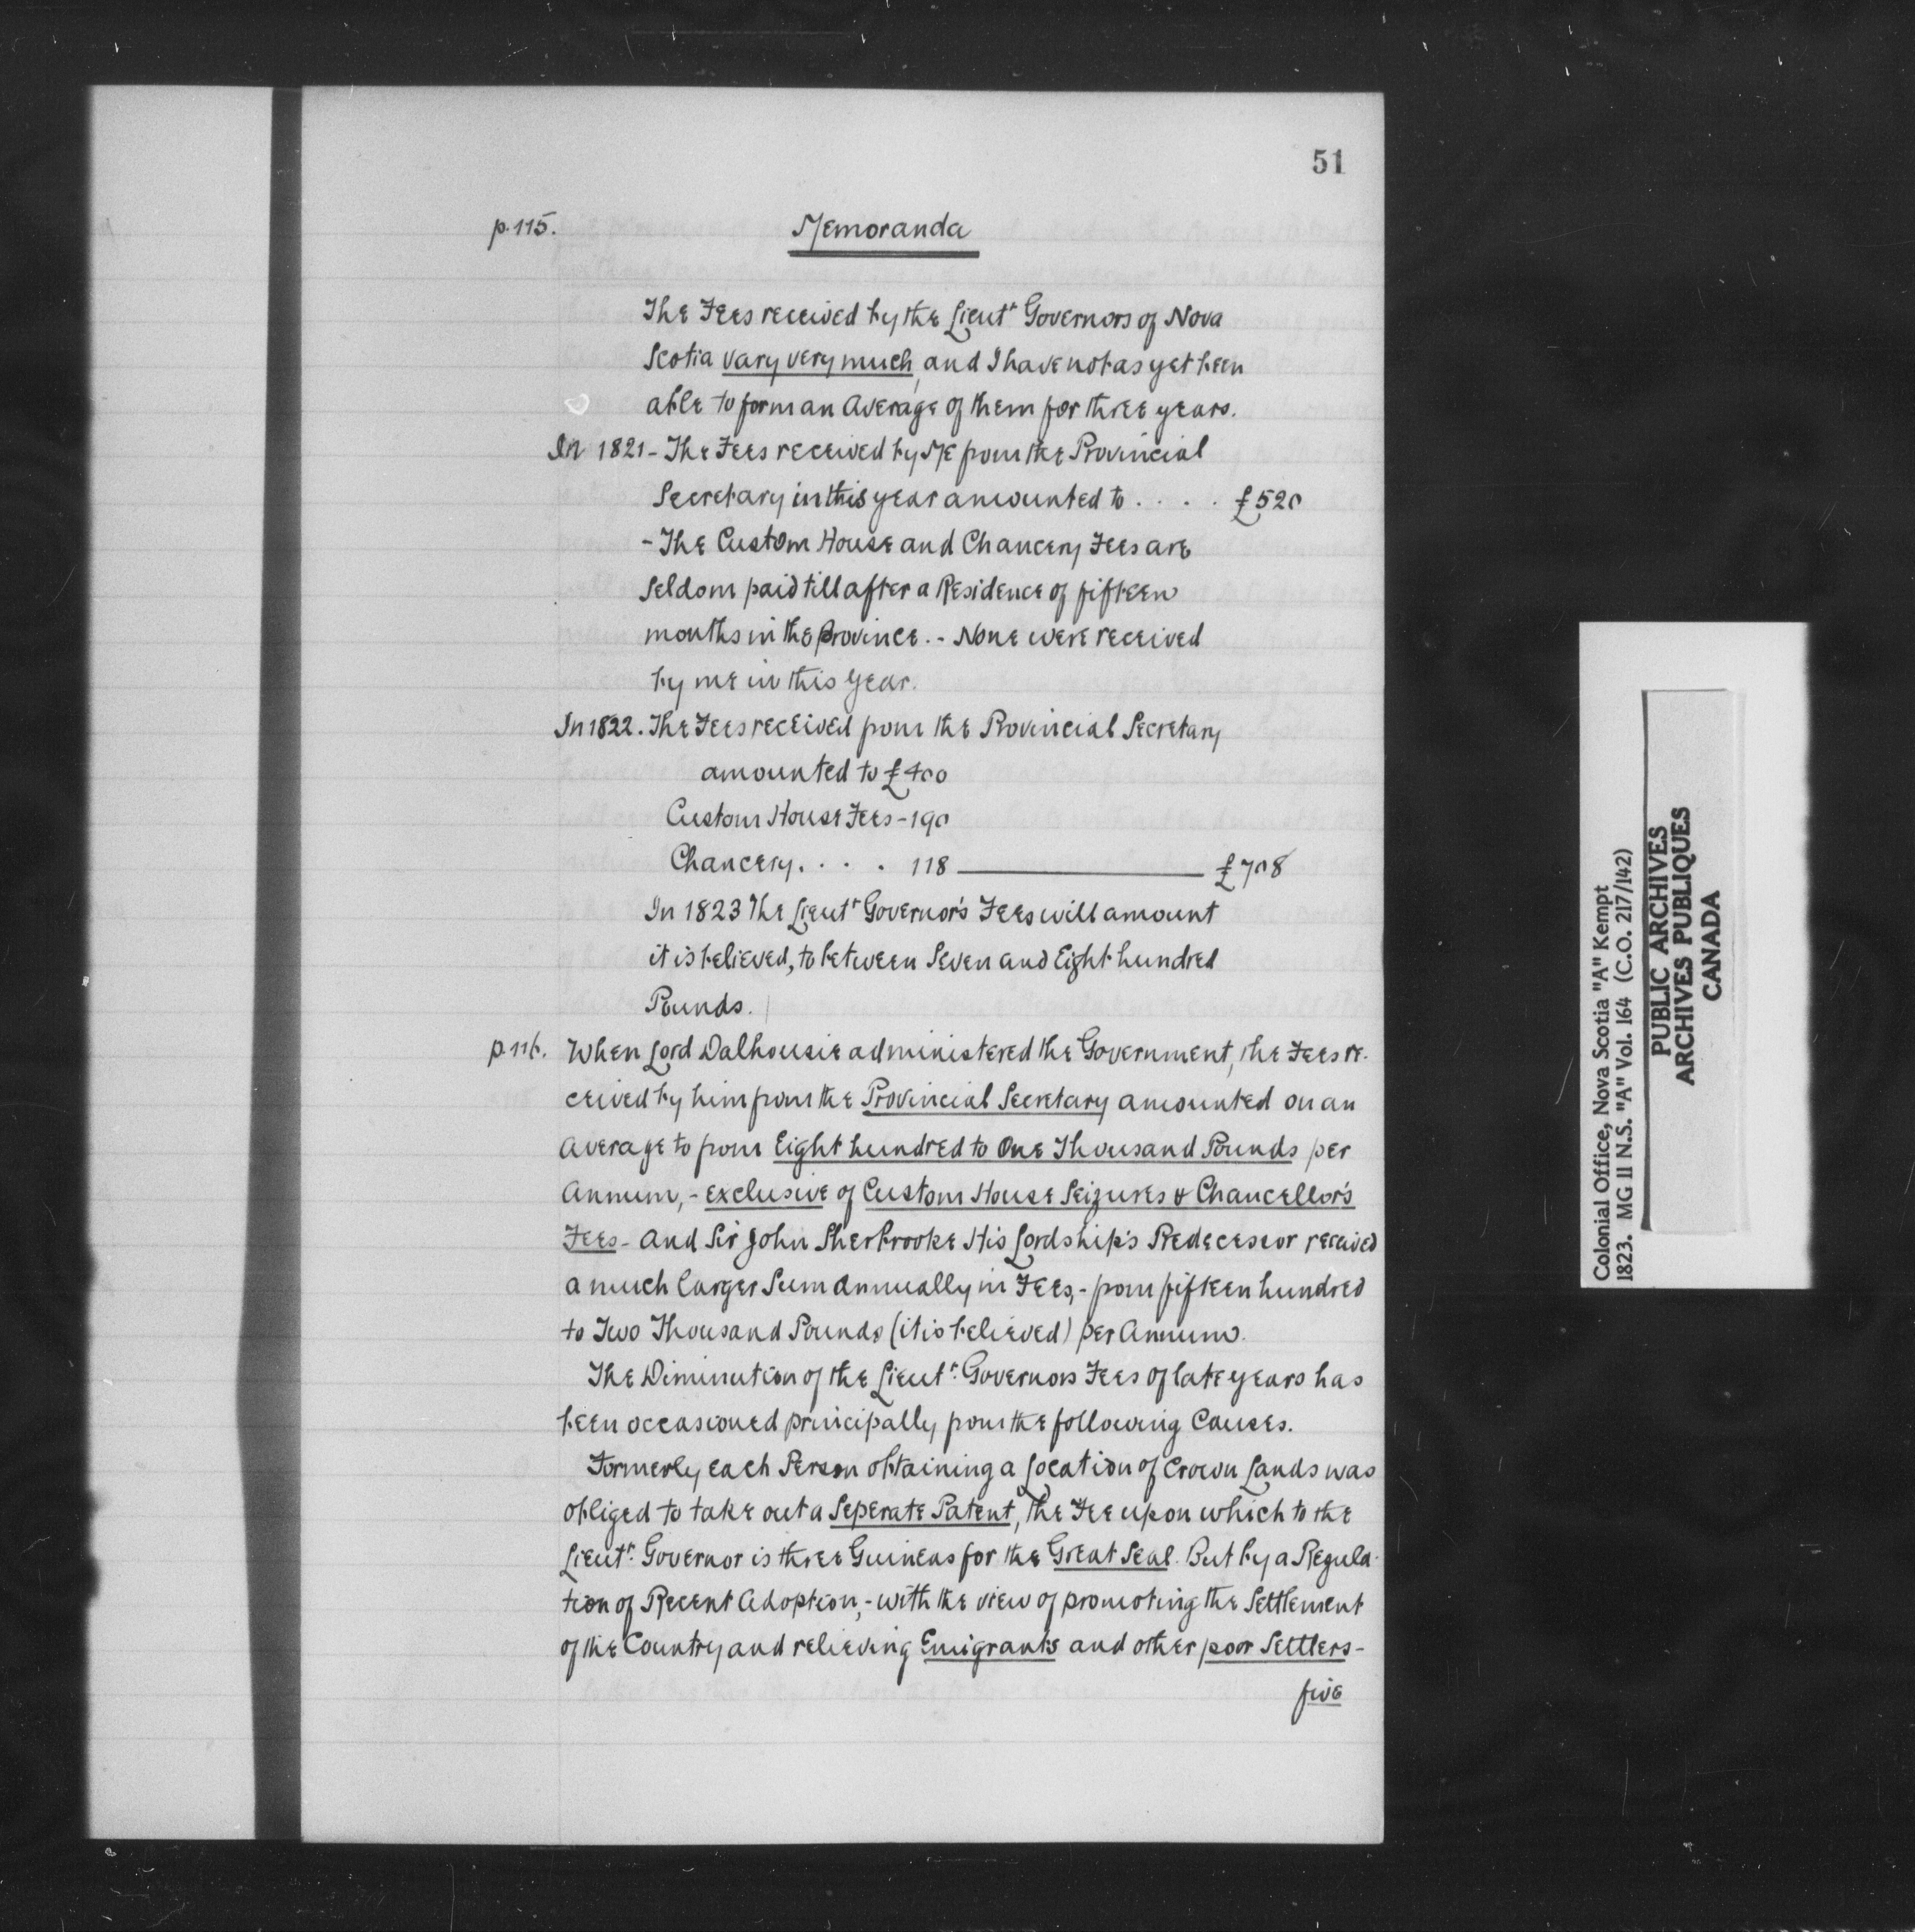 51
p. 115.
Memoranda
The Fees received by the Lieut.r Governors of Nova
Scotia vary very much, and I have not as yet been
able to form an Average of them for three years.
In 1821 - The Fees received by Me from the Provincial
Secretary in this year amounted to . . . . £520
- The Custom House and Chancery Fees are
Seldom paid till after a Residence of fifteen
months in the Province. - None were received
by me in this year.
In 1822. The Fees received from the Provincial Secretary
amounted to £400
Custom House Fees - 190
Chancery. . . . 118 — £708
In 1823 The Lieutr Governor's Fees will amount
it is believed, to between Seven and Eight hundred
Pounds.
p. 116. When Lord Dalhousie administered the Government, the Fees re-
ceived by him from the Provincial Secretary amounted on an
Average to from Eight hundred to One Thousand Pounds per
Annum, - exclusive of Custom House Seizures & Chancellor's
Fees - And Sir John Sherbrooke His Lordship's Predecessor received
a much larger Sum annually in Fees, - from fifteen hundred
to Two Thousand Pounds (it is believed) per Annum.
The Diminution of the Lieutr. Governors Fees of late years has
been occasioned principally from the following Causes.
Formerly each Person obtaining a Location of Crown Lands was
obliged to take out a Seperate Patent, the Fee upon which to the
Lieutr. Governor is three Guineas for the Great Seal. But by a Regula-
tion of Recent Adoption, - with the view of promoting the Settlement
of the Country and relieving Emigrants and other poor Settlers -
five
Colonial Office, Nova Scotia "A" Kempt
1823. MG II N.S. "A" Vol. 164 (C.O. 217/142)
PUBLIC ARCHIVES
ARCHIVES PUBLIQUES
CANADA